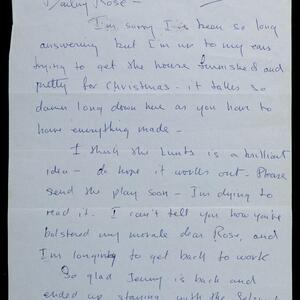 Darling Rose -
I'm sorry I've been so long
answering but I'm up to my ears
trying to get the house furnished and
pretty for Christmas - it takes so
damn long down here as you have to
have everything made -
I think the Lunts is a brilliant
idea - do hope it works out. Please
send the play soon - I'm dying to
read it. I can't tell you how you've
bolstered my morale dear Rose, and
I'm longing to get back to work
So glad Jenny is back and
ended up staying with the